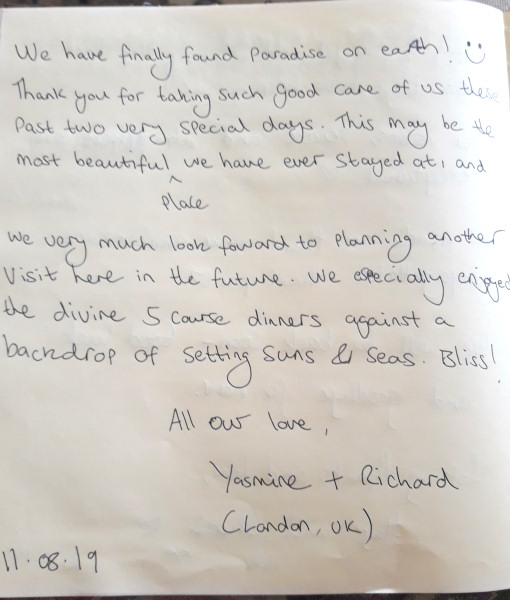 We have finally found Paradise on earth! :)
Thank you for taking such good care of us these
Past two very special days. This may be the
most beautiful ^ we have ever stayed at, and
Place
we very much look foward to planning another
visit here in the future. We especially enjoyed
the divine 5 course dinners against a
backdrop of setting suns & seas. Bliss!
All our love,
Yasmine + Richard
(London, UK)
11.08.19